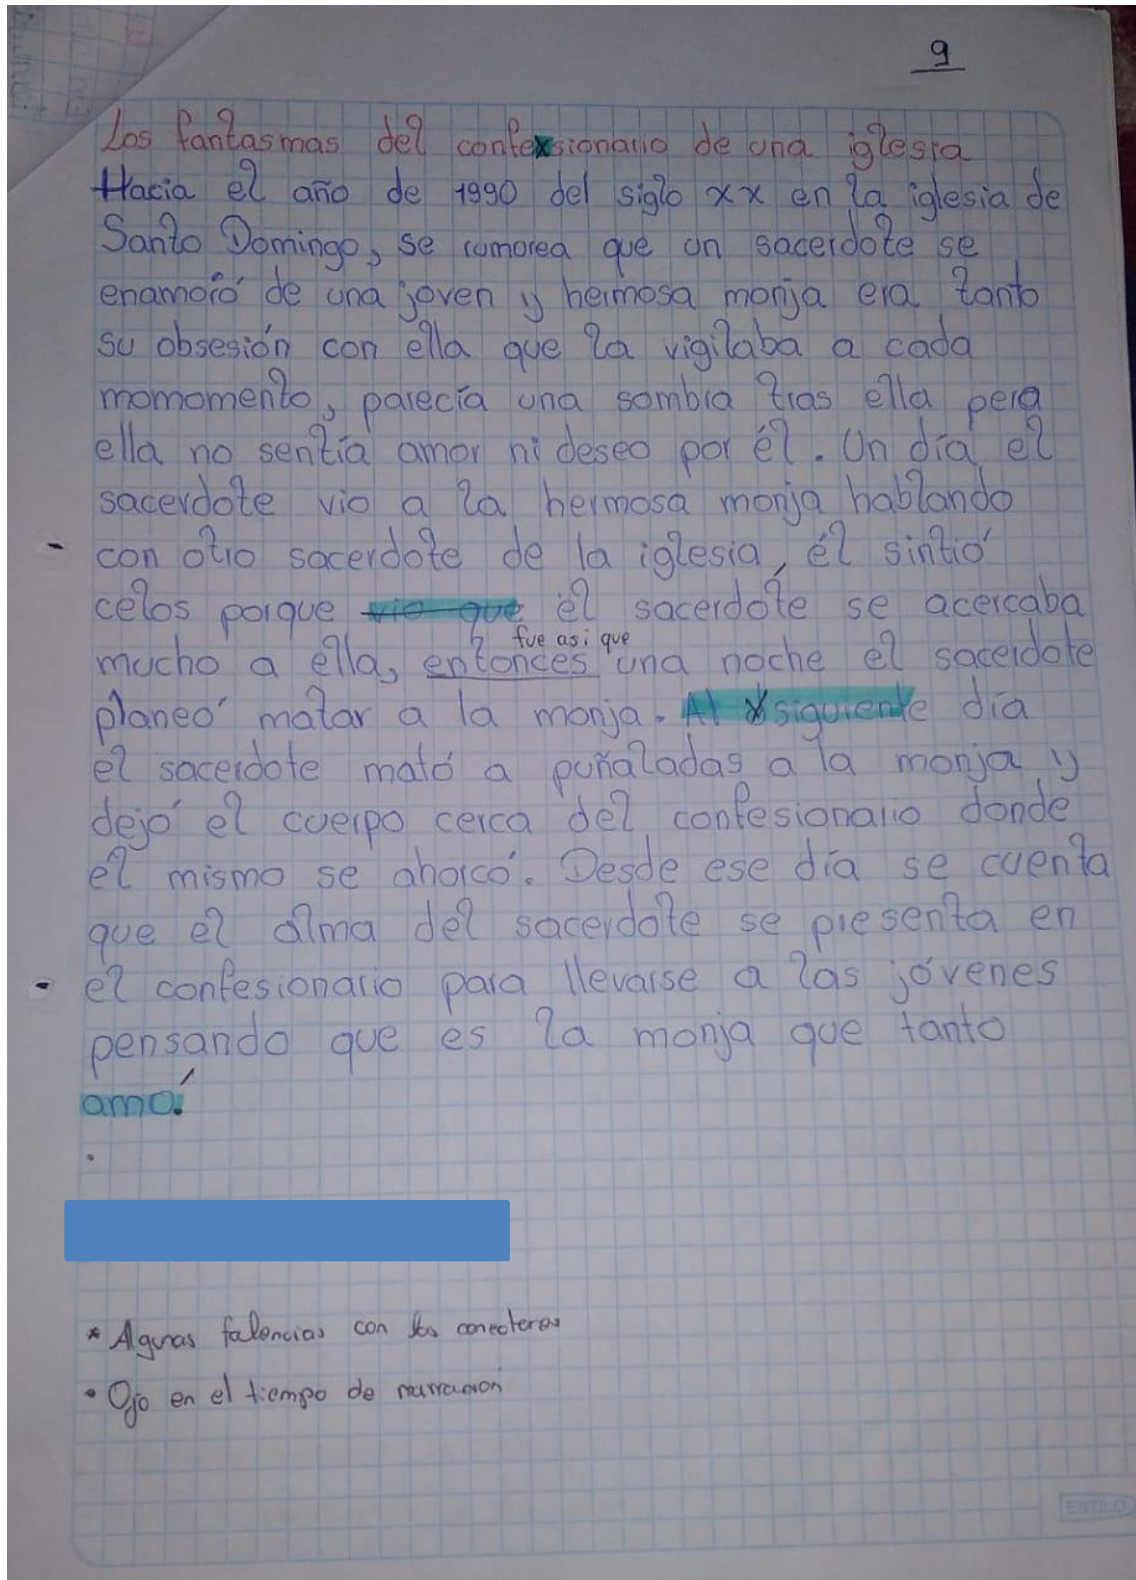 9
Los fantasmas del confexsionario de una iglesia
Hacia el año de 1990 del siglo xx en la iglesia de
Santo Domingo, se rumorea que un sacerdote se
enamoró de una joven y hermosa monja era tanto
su obsesión con ella que la vigilaba a cada
momomento, parecía una sombra tras ella pera
ella no sentía amor ni deseo por él. Un día el
sacerdote vio a la hermosa monja hablando
con otro sacerdote de la iglesia, él sintió
celos porque vio que el sacerdote se acercaba
fue asi que
mucho a ella, entonces una noche el sacerdote
planeó matar a la monja. Al siguiente día
el sacerdote mató a puñaladas a la monja y
dejó el cuerpo cerca del confesionario donde
él mismo se ahorcó. Desde ese día se cuenta
que el alma del sacerdote se presenta en
el confesionario para llevarse a las jóvenes
pensando que es la monja que tanto
amó.
* Algunas falencias con los conectores
• Ojo en el tiempo de narración
ESTILO